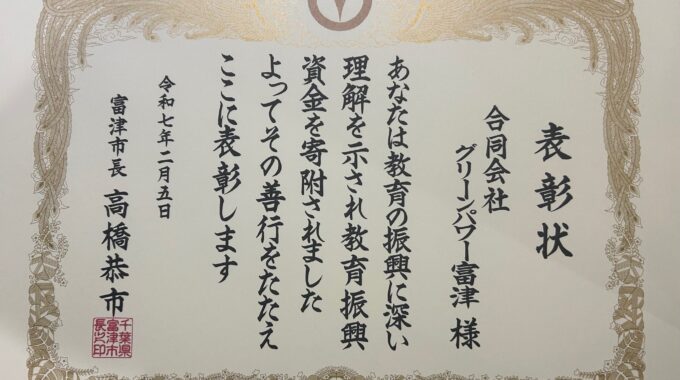 表彰状
合同会社
グリーンパワー富津 様
あなたは教育の振興に深い
理解を示され教育振興
資金を寄附されました
よってその善行をたたえ
ここに表彰します
令和七年二月五日
富津市長 高橋恭市
千葉県
富津市
長之印